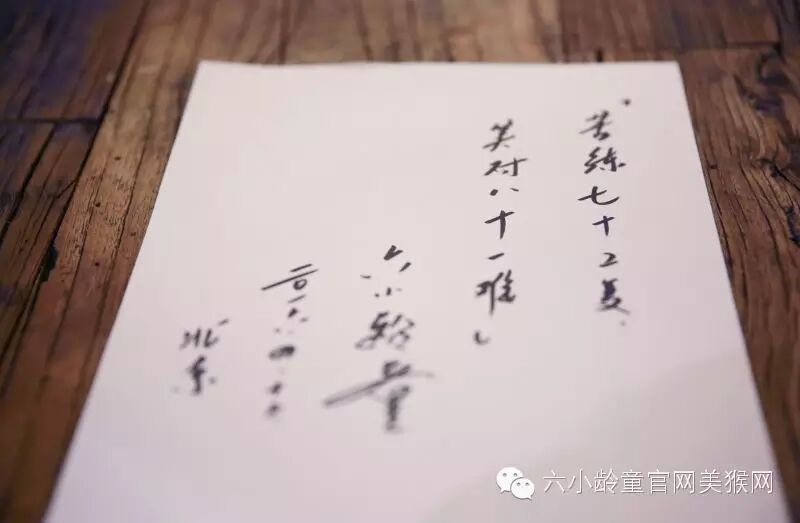 "苦练七十二变,
笑对八十一难"
六小龄童
二〇一六.四.
北京
六小龄童官网美猴网